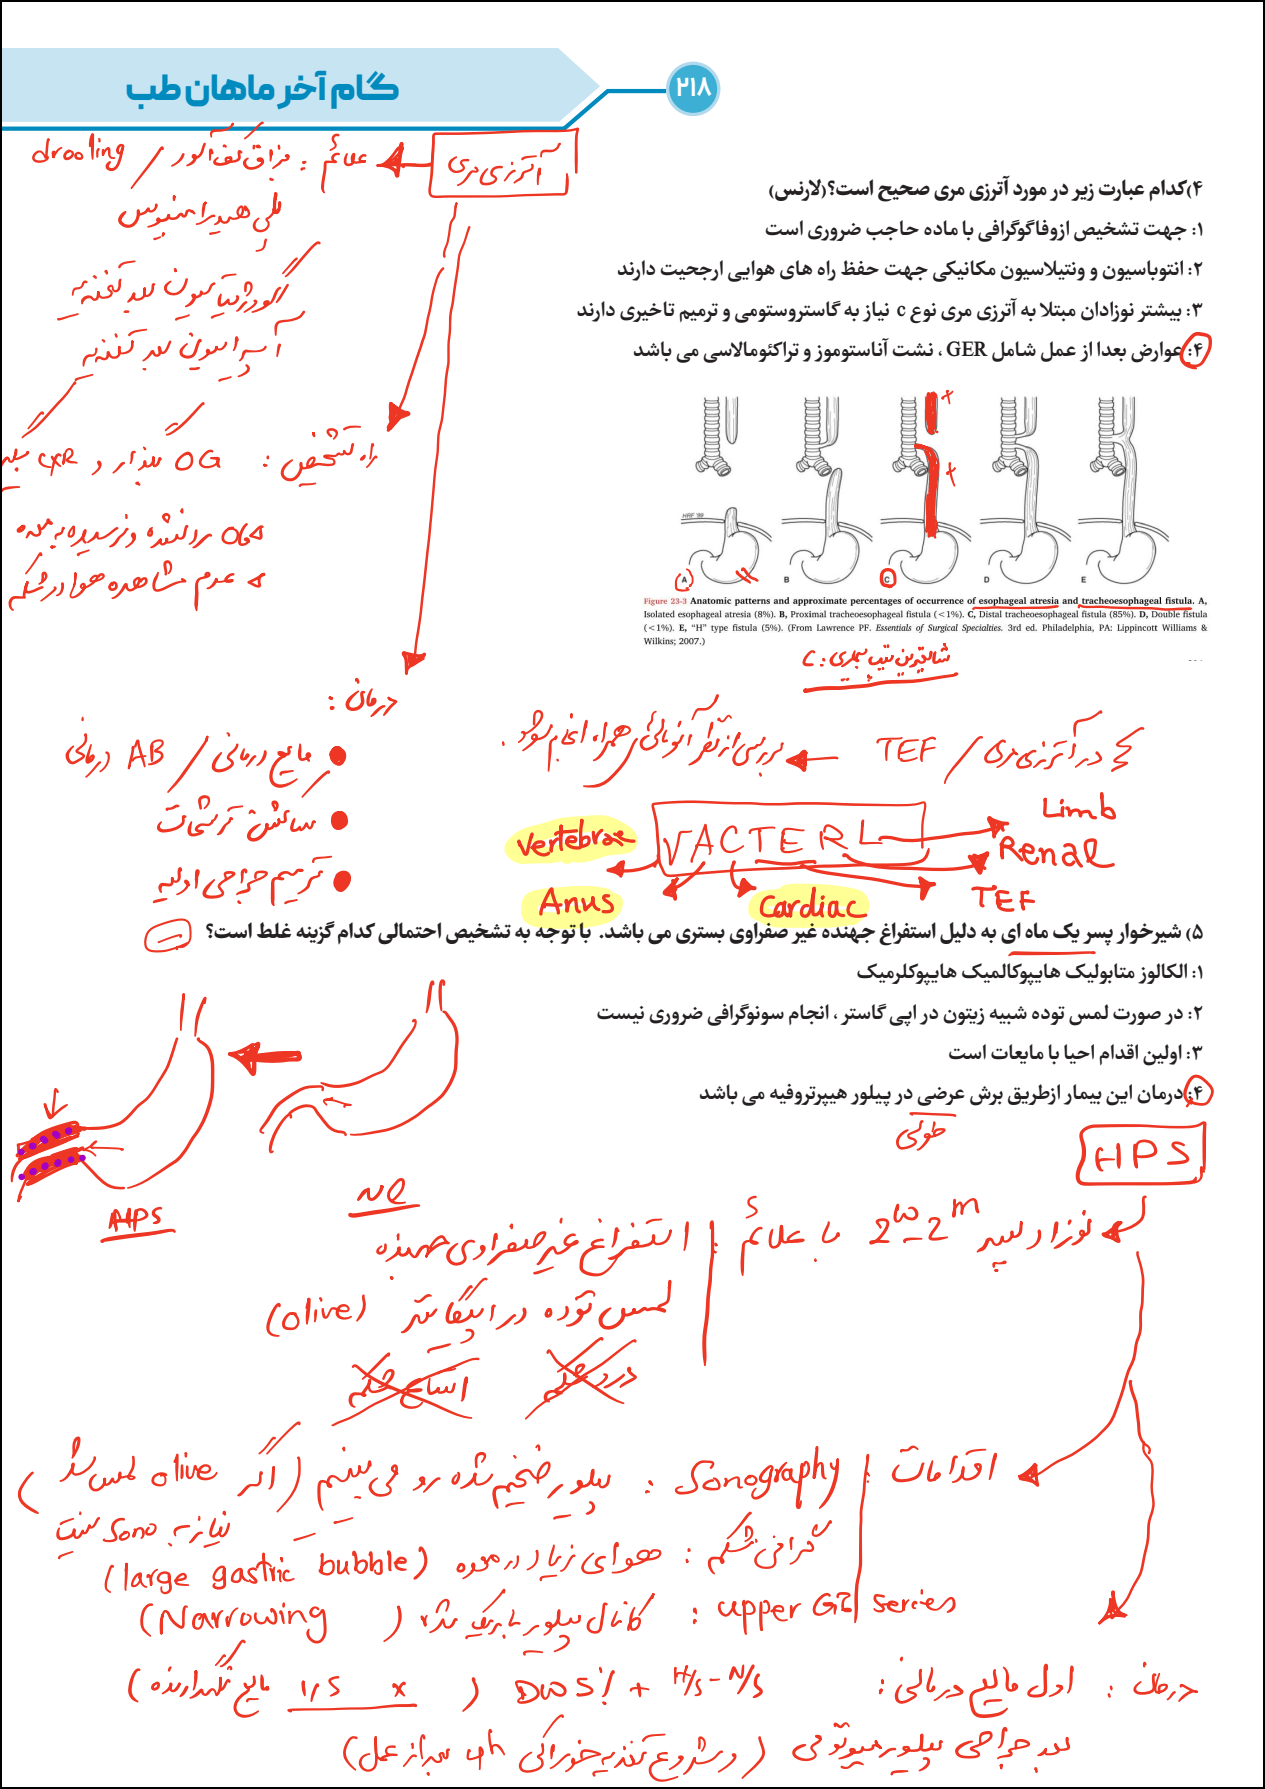 گام آخر ماهان طب
۲۱۸
آترزی مری
علائم : بزاق کف‌آلود / drooling
پلی هیدرآمنیوس
بعد تغذیه
آسپراسیون بعد تغذیه
راه تشخیص : OG بذار و CXR بگیر
OG رد نشده و نرسیده به معده
عدم مشاهده هوا در شکم
درمان :
مایع درمانی / AB درمانی
ساکشن ترشحات
ترمیم جراحی اولیه
۴)کدام عبارت زیر در مورد آترزی مری صحیح است؟(لارنس)
۱: جهت تشخیص ازوفاگوگرافی با ماده حاجب ضروری است
۲: انتوباسیون و ونتیلاسیون مکانیکی جهت حفظ راه های هوایی ارجحیت دارند
۳: بیشتر نوزادان مبتلا به آترزی مری نوع c نیاز به گاستروستومی و ترمیم تاخیری دارند
۴: عوارض بعدا از عمل شامل GER ، نشت آناستوموز و تراکئومالاسی می باشد
HRF '99
A B C D E
Figure 23-3 Anatomic patterns and approximate percentages of occurrence of esophageal atresia and tracheoesophageal fistula. A,
Isolated esophageal atresia (8%). B, Proximal tracheoesophageal fistula (<1%). C, Distal tracheoesophageal fistula (85%). D, Double fistula
(<1%). E, “H” type fistula (5%). (From Lawrence PF. Essentials of Surgical Specialties. 3rd ed. Philadelphia, PA: Lippincott Williams &
Wilkins; 2007.)
شایعترین تیپ بیماری : C
در آترزی مری / TEF بررسی از نظر آنومالی همراه انجام شود .
VACTERL
Vertebrae
Anus
Cardiac
TEF
Renal
Limb
۵) شیرخوار پسر یک ماه ای به دلیل استفراغ جهنده غیر صفراوی بستری می باشد. با توجه به تشخیص احتمالی کدام گزینه غلط است؟
۱: الکالوز متابولیک هایپوکالمیک هایپوکلرمیک
۲: در صورت لمس توده شبیه زیتون در اپی گاستر ، انجام سونوگرافی ضروری نیست
۳: اولین اقدام احیا با مایعات است
۴: درمان این بیمار ازطریق برش عرضی در پیلور هیپرتروفیه می باشد
طولی
HPS
HPS
نوزاد پسر 2w-2m با علائم : استفراغ غیرصفراوی جهنده
لمس توده در اپیگاستر (olive)
درد شکم
اتساع شکم
اقدامات : Sonography : پیلور ضخیم شده رو می بینیم (اگر olive لمس شد
نیاز به sono نیست)
گرافی شکم : هوای زیاد در معده (large gastric bubble)
upper GI series : کانال پیلور باریک شده (Narrowing)
درمان : اول مایع درمانی : DW5% + H/S-N/S (1,5 x مایع نگهدارنده)
بعد جراحی پیلورمیوتومی (و شروع تغذیه خوراکی 4h بعد از عمل)